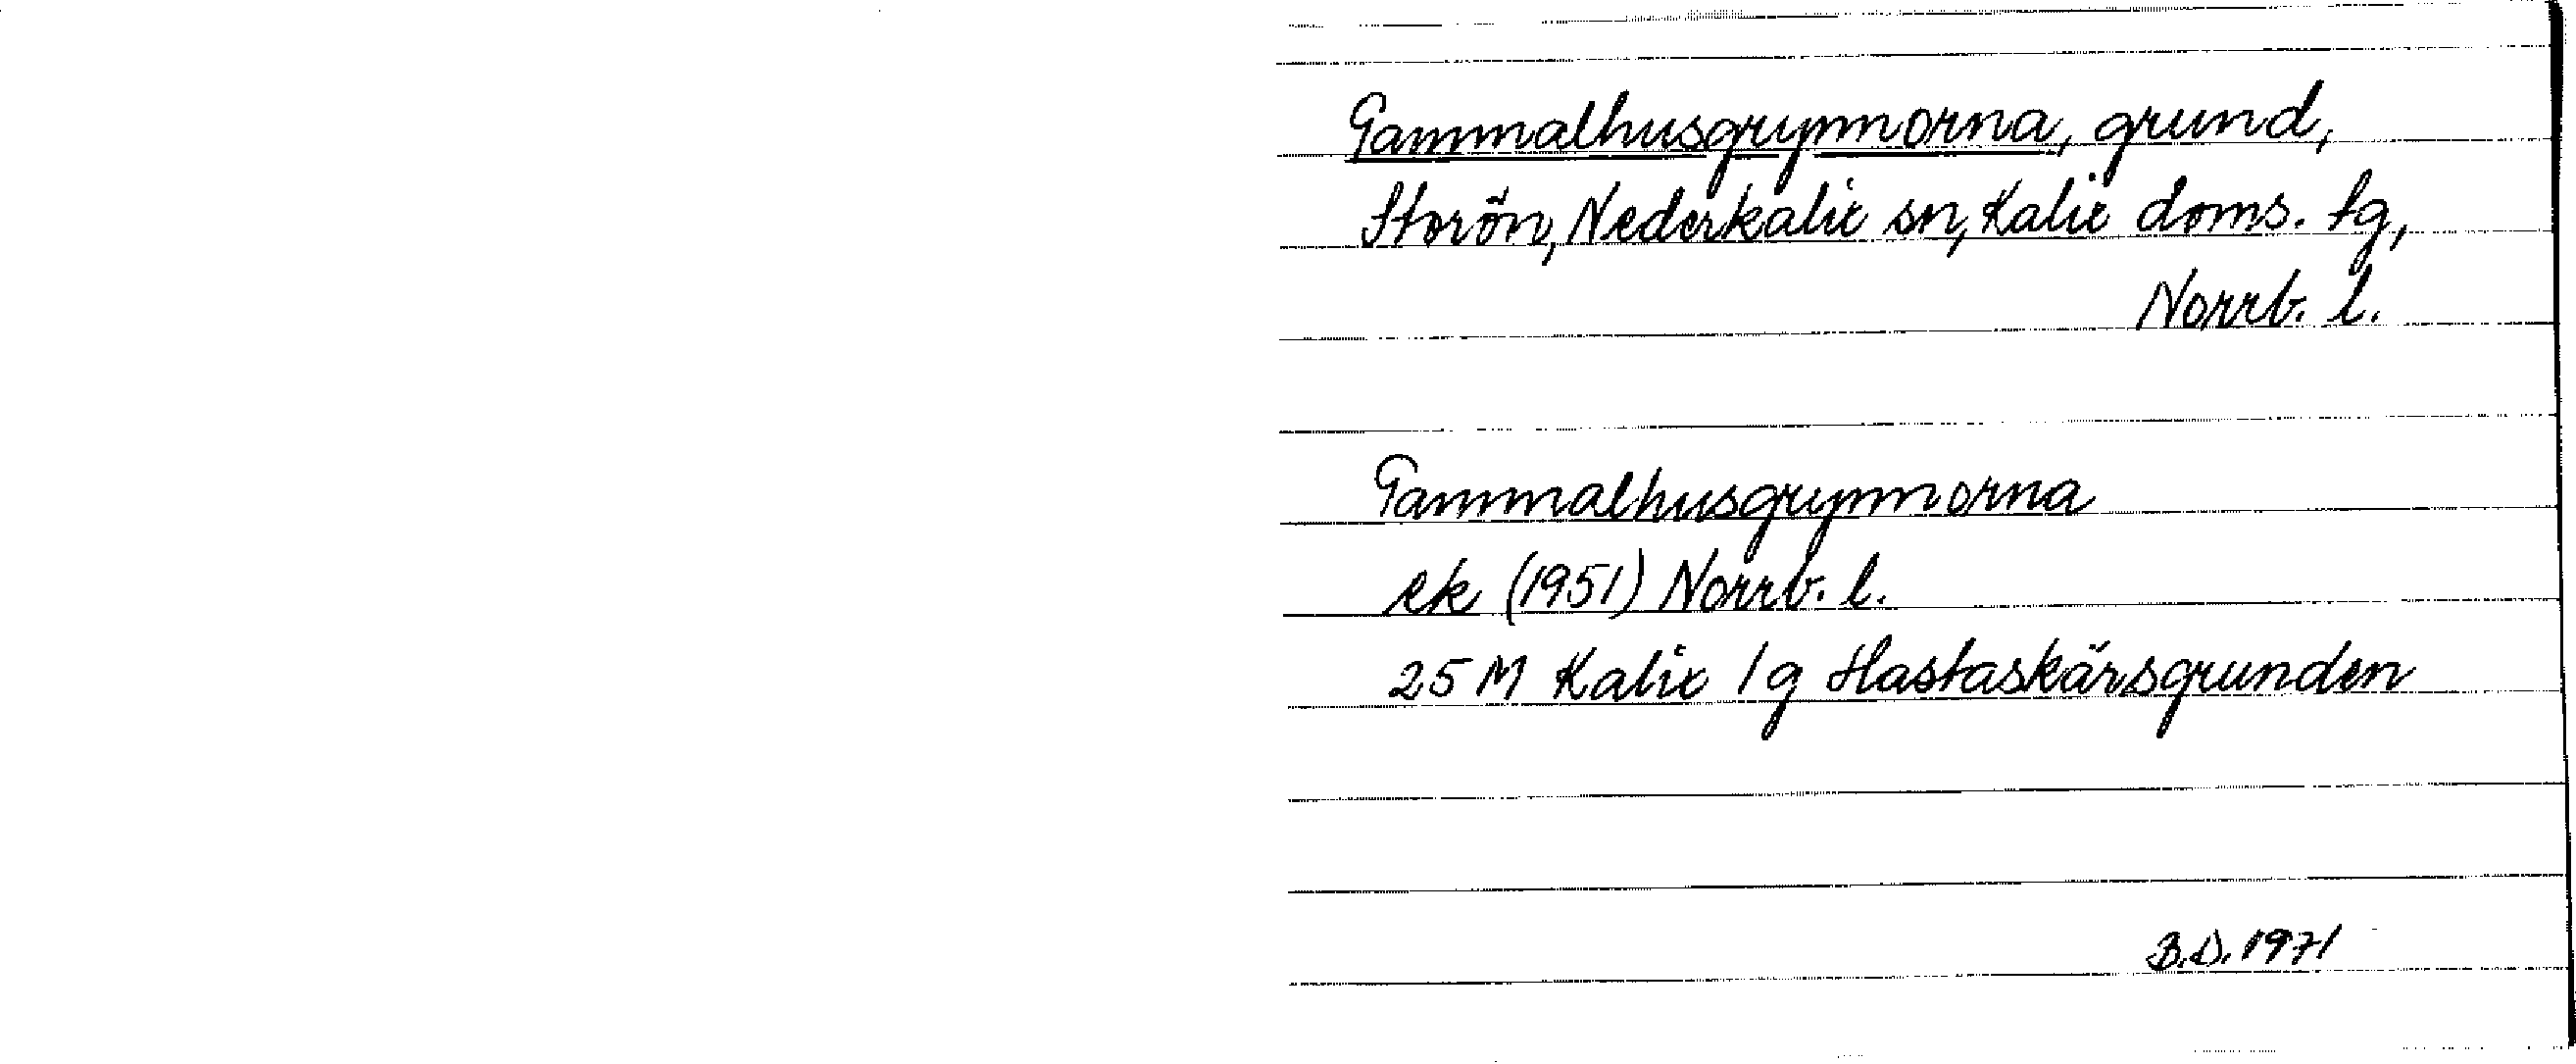 Gammalhusgrynnorna, grund,
Storön, Nederkalix sn, Kalix doms. tg,
Norrb. l.
Gammalhusgrynnorna
ek (1951) Norrb. l.
25 M Kalix 1g Hastaskärsgrunden
B.D. 1971